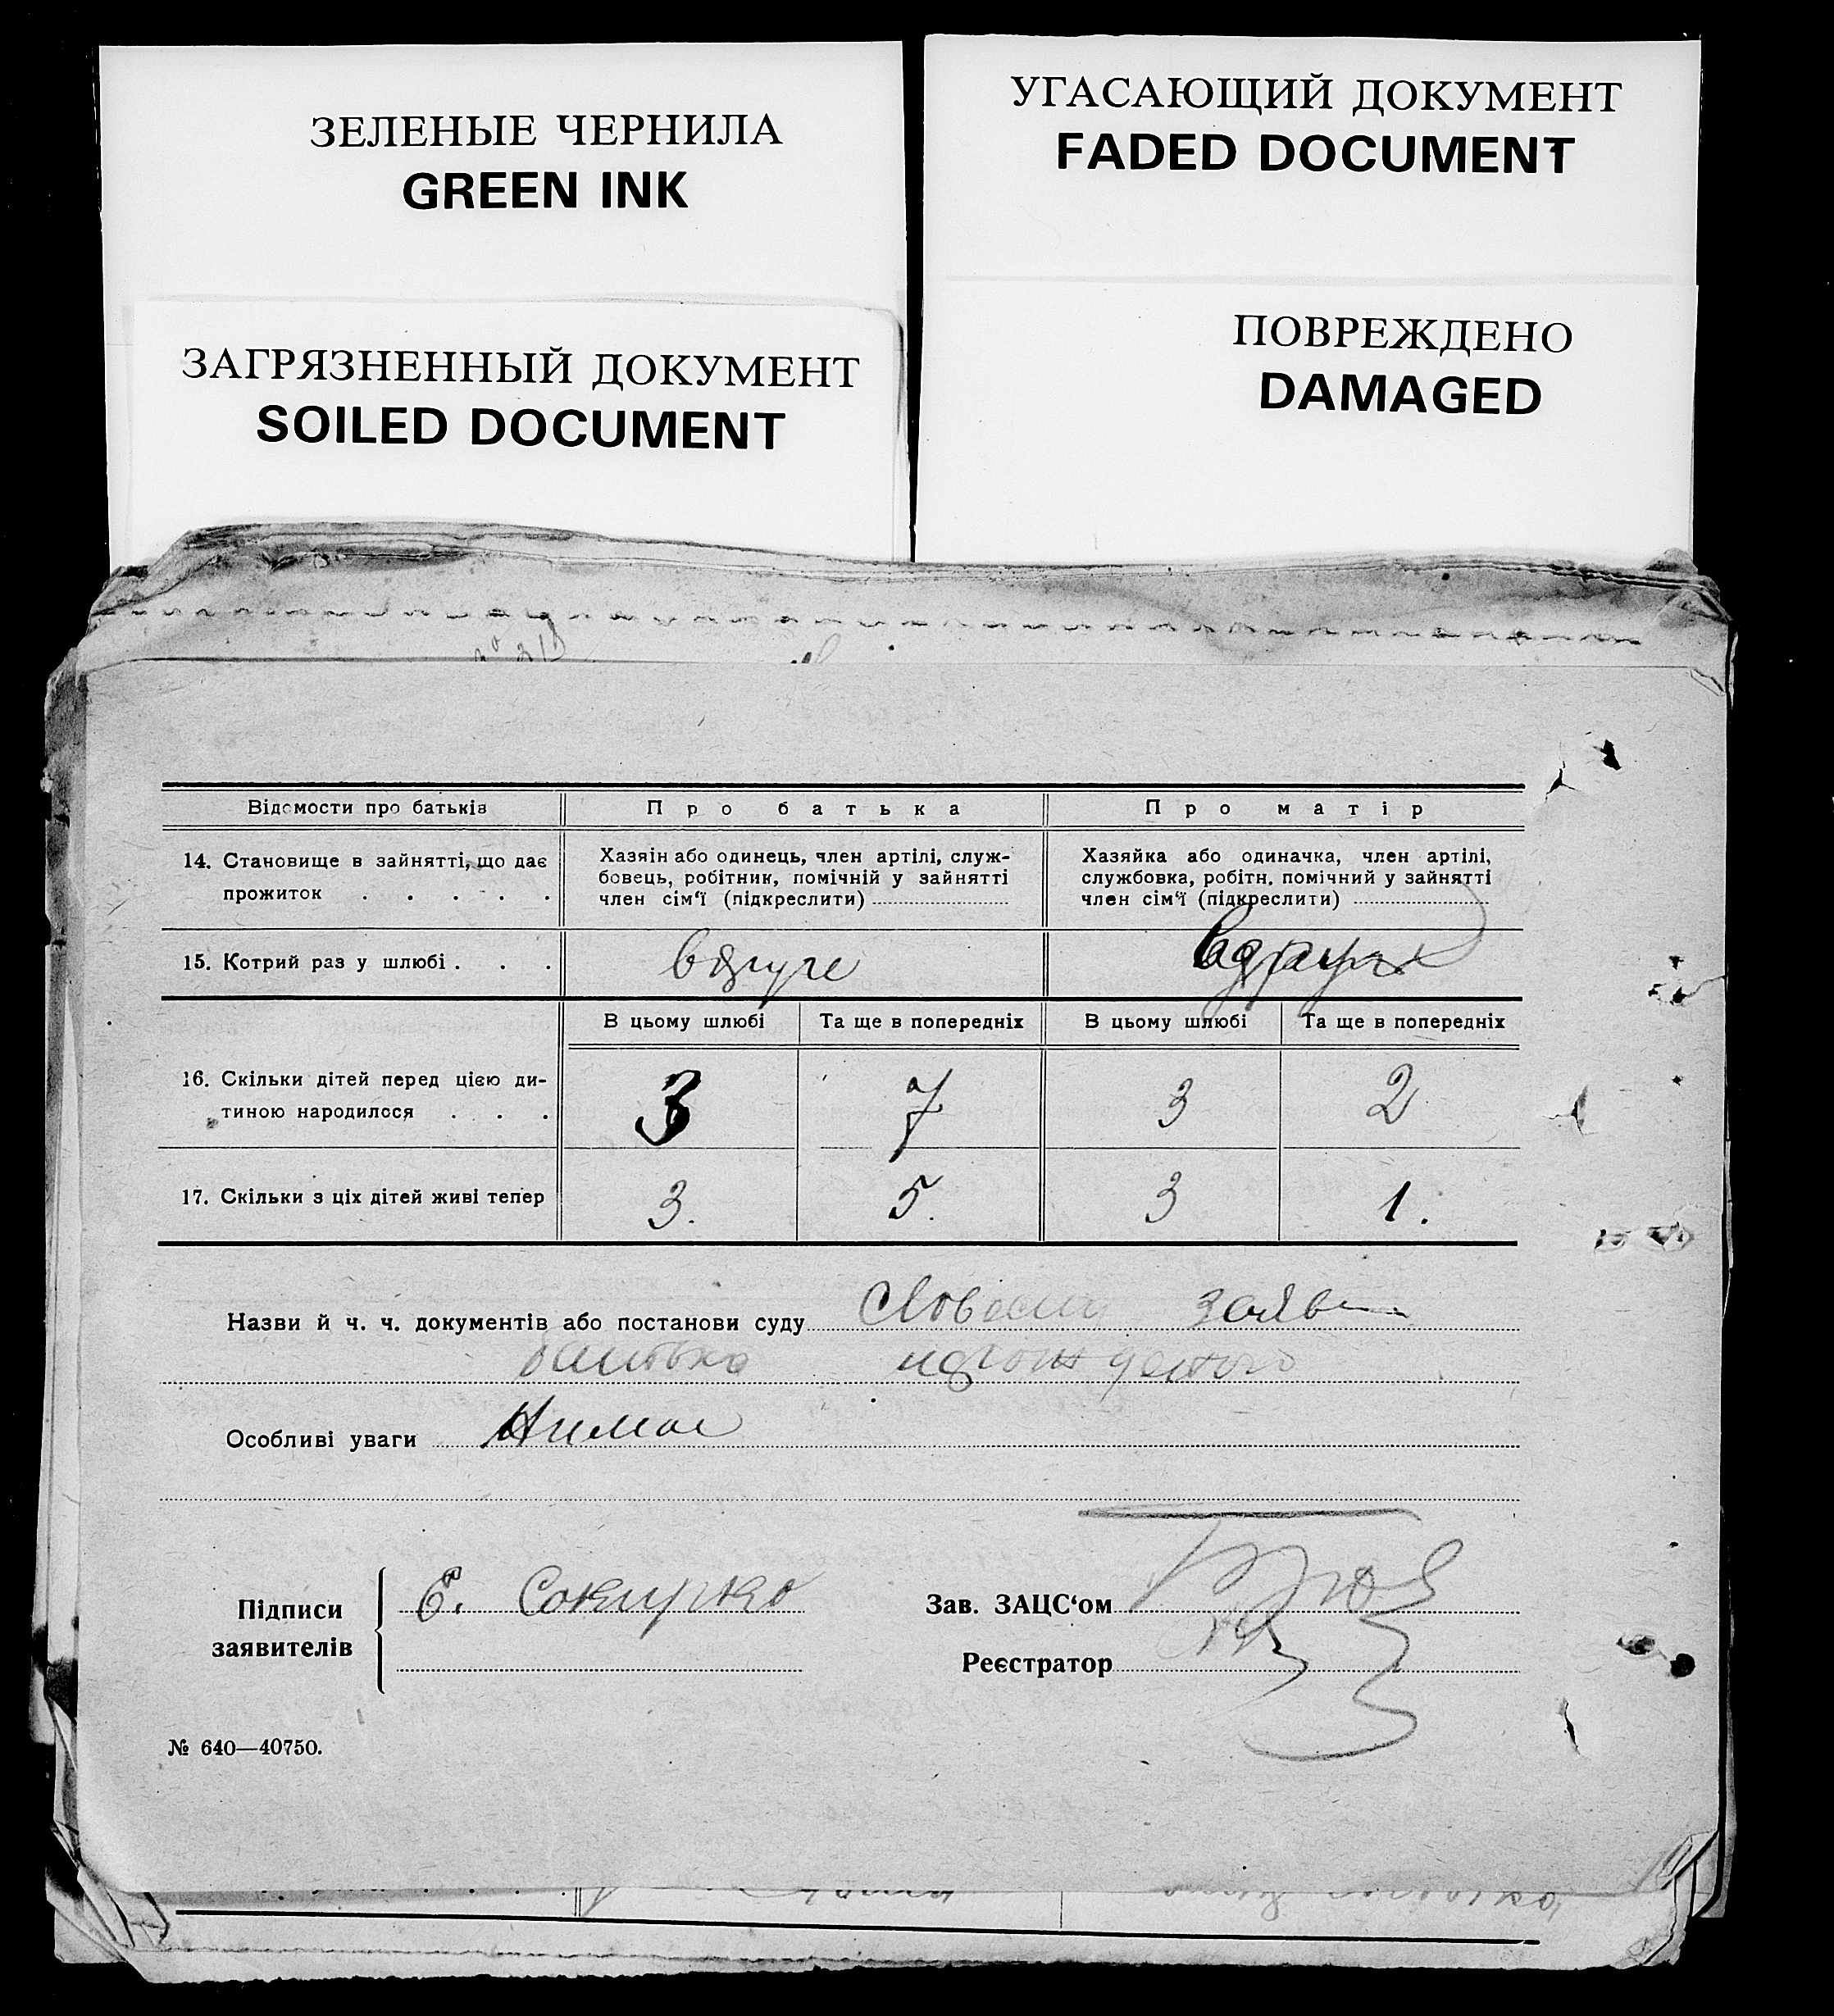 ЗЕЛЕНЫЕ ЧЕРНИЛА
GREEN INK
УГАСАЮЩИЙ ДОКУМЕНТ
FADED DOCUMENT
ЗАГРЯЗНЕННЫЙ ДОКУМЕНТ
SOILED DOCUMENT
ПОВРЕЖДЕНО
DAMAGED
Відомости про батьків Про батька Про матір
14. Становище в зайнятті, що дає
прожиток . . . . .
Хазяін або одинець, член артілі, служ-
бовець, робітник, помічній у зайнятті
член сім‘ї (підкреслити)
Хазяйка або одиначка, член артілі,
службовка, робітн. помічний у зайнятті
член сім‘ї (підкреслити)
15. Котрий раз у шлюбі . . . вдруге вдруге
В цьому шлюбі Та ще в попередніх В цьому шлюбі Та ще в попередніх
16. Скільки дітей перед цією ди-
тиною народилося . . . 3 7 3 2
17. Скільки з ціх дітей живі тепер 3. 5. 3 1.
Назви й ч. ч. документів або постанови суду Словесна заява
батька
Особливі уваги Нимае
Підписи
заявителів
Є. Сокирко
Зав. ЗАЦС‘ом
Реєстратор
№ 640—40750.